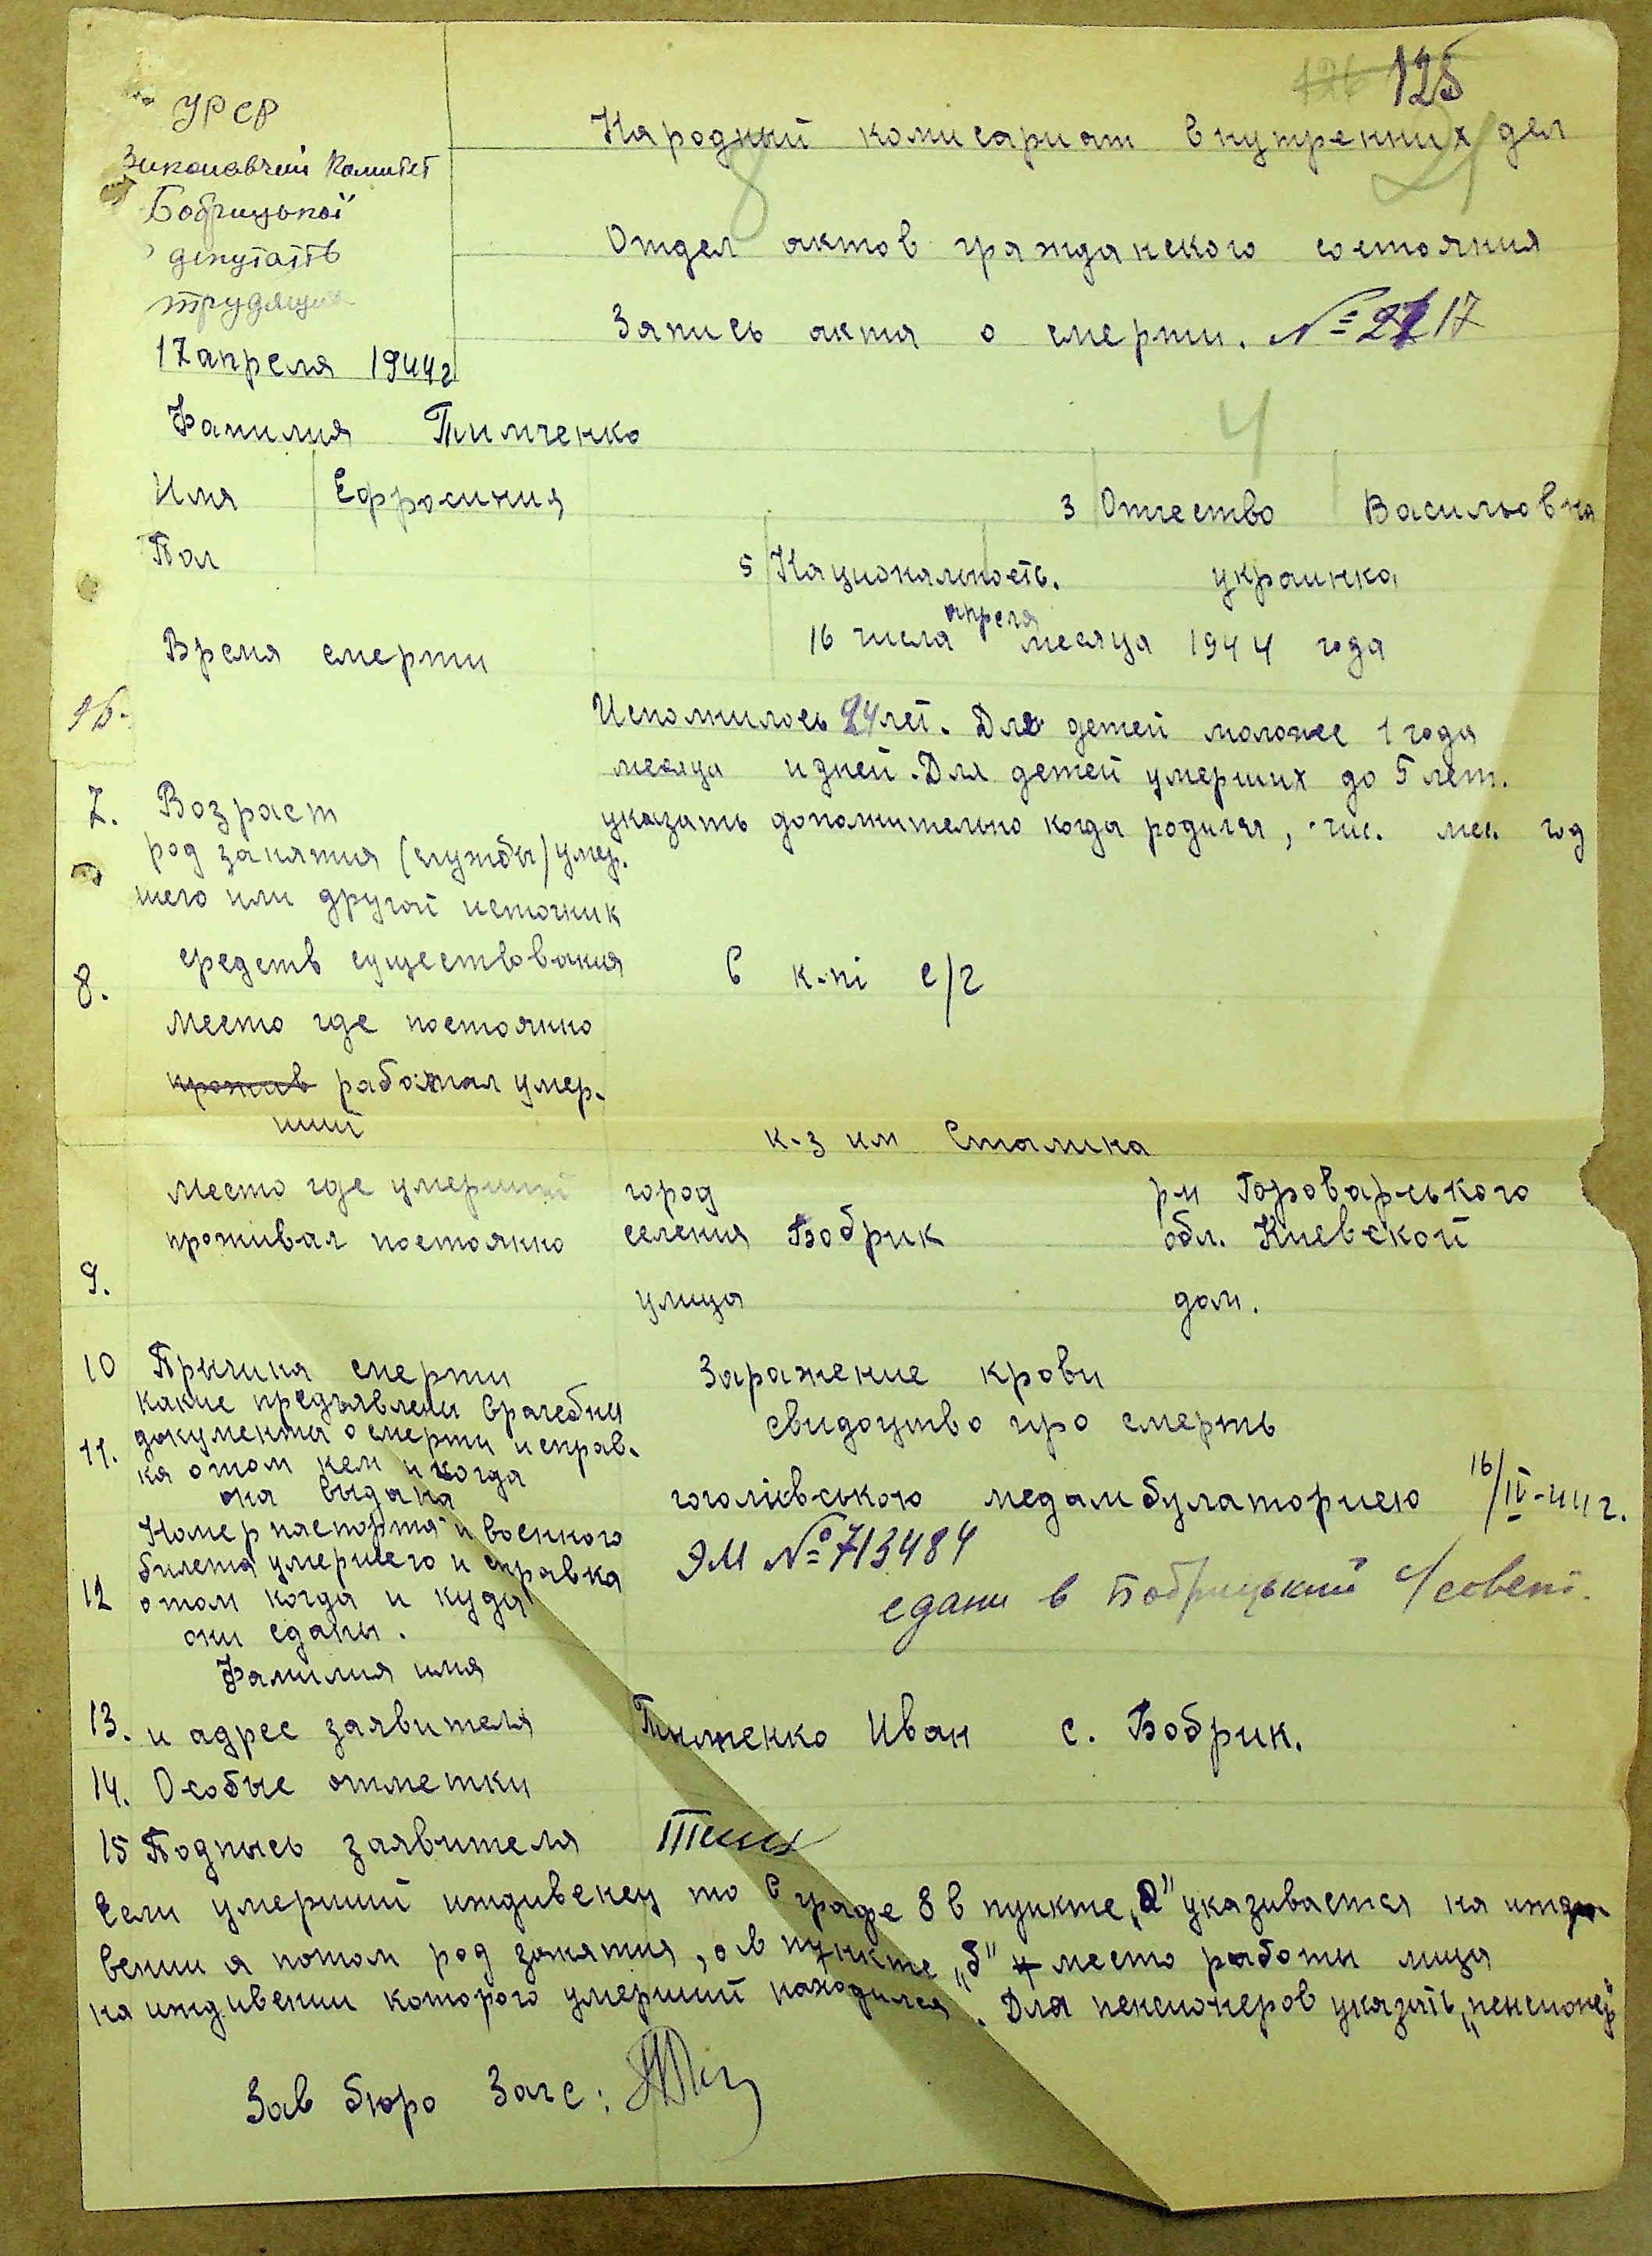 125
УРСР
Виконавчий Комитет
Бобрицької
депутатів
трудящих
17 апреля 1944 г
Народный комисариат внутренних дел
Отдел актов гражданского состояния
Запись акта о смерти. № 17
4
Фамилия Тимченко
Имя Ефросиния 3 Отчество Васильовна
Пол 5 Национальность. украинка
Время смерти 16 числа апреля месяца 1944 года
Исполнилось 24 лет. Для детей моложе 1 года
месяца и дней. Для детей умерших до 5 лет.
7. Возраст указать дополнительно когда родился, чис. мес. год
род занятия (службы) умер.
шего или другой источник
8. средств существования в к-пі с/г
Место где постоянно
прожив работал умер-
ший
к-з им Сталина
Место где умерший город рн Броварського
проживал постоянно селения Бобрик обл. Киевской
9.
улица дом.
10 Причина смерти Заражение крови
какие предъявлены врачебны
11. документы о смерти и справ-
ка о том кем и когда
она выдана
свидоцтво про смерть
гоголівською медамбулаториею 16/IV-44 г.
Номер паспорта и военного
билета умершего и справка
12 о том когда и куда
они сданы.
ЭМ № 713484
сдани в Бобрицький с/совет.
Фамилия имя
13. и адрес заявителя Тимченко Иван с. Бобрик.
14. Особые отметки
15 Подпысь заявителя Тим
Если умерший иждивенец то в графе 8 в пункте „а" указивается на ижди-
вении а потом род занятия, а в пункте „б" место работы лица
на иждивении которого умерший находился. Для пенсионеров указать „пенсионер"
Зав бюро Загс: